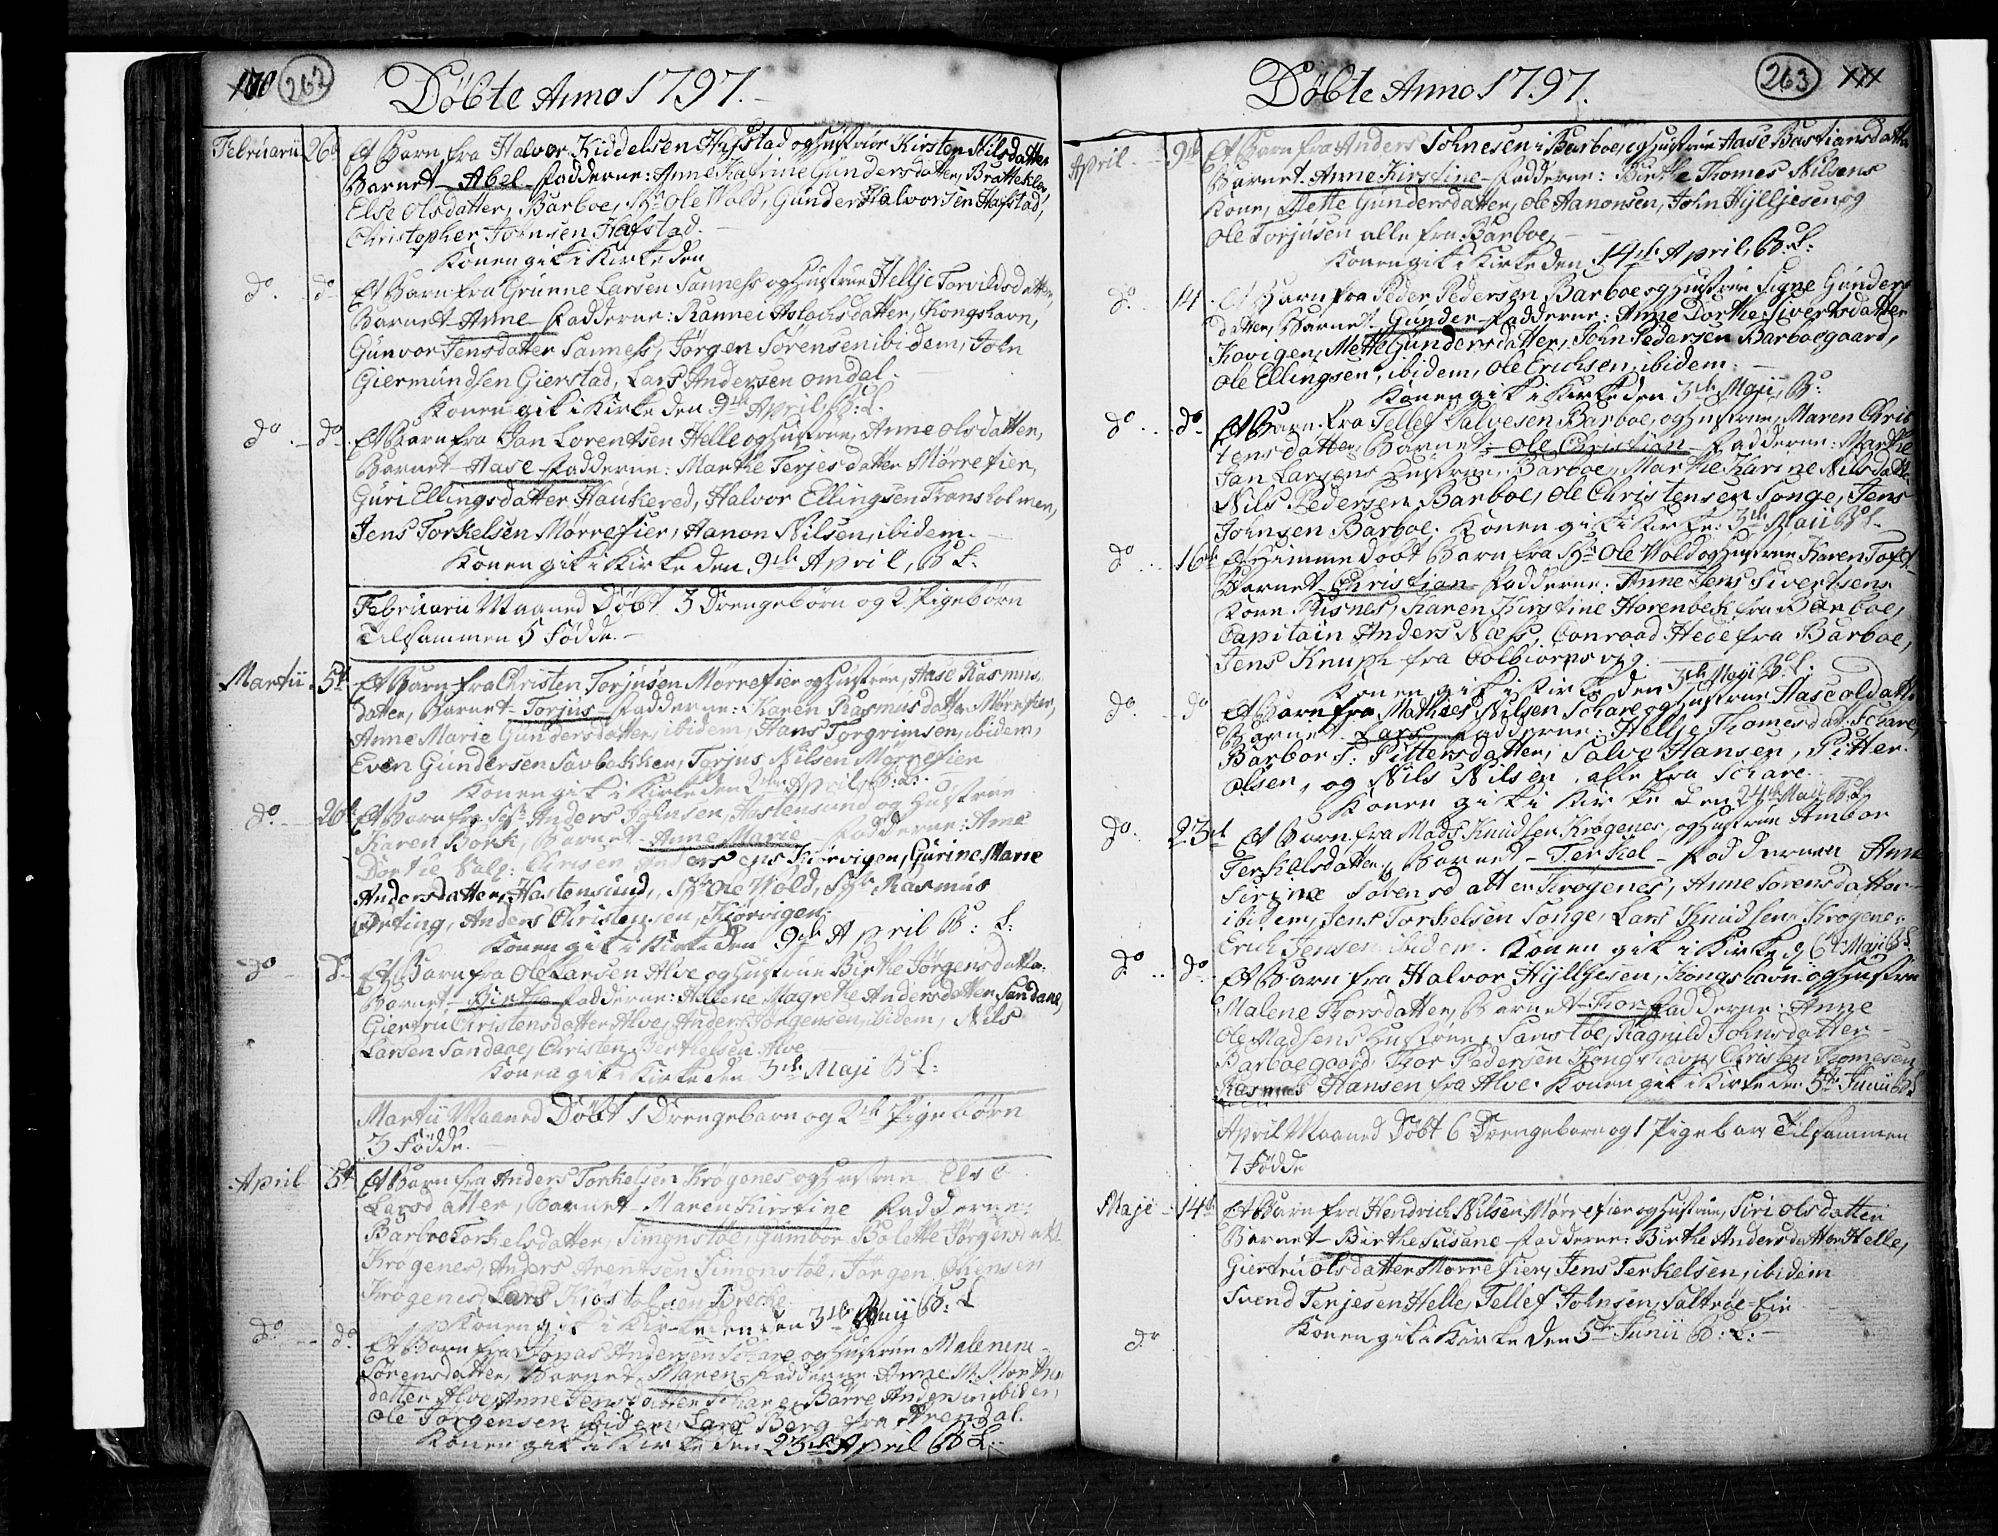 110 262 Döbte Anno 1797.
Februarii 26de Et Barn fra Halvor Kiddelsen Hafstad og Hustrue Kirsten Nilsdatter
Barnet Abel Fadderne: Anne Katrine Gundersdatter, Bratteklev,
Else Olsdatter, Barboe, Sr Ole Wold, Gunder Halvorsen Hafstad,
Christopher Johnsen Hafstad.
Konen gik i Kirke den
do. do Et Barn fra Grunne Larsen Sanness og Hustrue Hellje Torvildsdatter,
Barnet Anne Fadderne: Rannei Aslachsdatter, Kongshavn,
Gunvor Jensdatter Sanness, Jörgen Sörensen ibidem, John
Giermundsen Gierstad, Lars Andersen Omdal.
Konen gik i Kirke den 9de April, B: L.
do. do Et Barn fra Jan Lorentsen Helle og Hustrue, Anne Olsdatter,
Barnet Aase Fadderne: Marthe Terjesdatter Mörrefier,
Guri Ellingsdatter Haukered, Halvor Ellingsen Fransholmen,
Jens Torkelsen Mörrefier, Aanon Nilsen, ibidem.
Konen gik i Kirke den 9de April, B L.
Februarii Maaned Döbt 3 Drengebörn og 2 Pigebörn
Tilsammen 5 Födde.
Martii 5te Et Barn fra Christen Torjusen Mörrefier og Hustrue, Aase Rasmus-
datter, Barnet Torjus Fadderne: Karen Rasmusdatter Mörrefier,
Anne Marie Gundersdatter, ibidem, Hans Torgrimsen, ibidem,
Even Gundersen Savbakken, Torjus Nilsen Mörrefier
Konen gik i Kirke den 2den April, B: L:
do. 26de Et Barn fra Anders Johnsen, Hastensund og Hustrue
Karen Bork, Barnet Anne Marie Fadderne: Ane
Dortie Kiörvigen, Gurine Marie
Andersdatter, Hastensund, Sr Ole Wold, Rasmus
Örting, Anders Christensen, Kjörvigen.
Konen gik i Kirke den 9de April B: L:
do do Et Barn fra Ole Larsen Alve og Hustrue Birthe Jörgensdatter
Barnet Birthe Fadderne: Helene Magrethe Andersdatter Sandane,
Giertru Christensdatter Alve, Anders Jörgensen, ibidem, Nils
Larsen Sandane, Christen Berthelsen Alve
Konen gik i Kirke den 3de Maji B: L:
Martii Maaned Döbt 1 Drengebarn og 2de Pigebörn
3 Födde.
April 5te Et Barn fra Anders Torkelsen Krögenes og Hustrue Else
Larsdatter, Barnet Maren Kirstine Fadderne:
Barbroe Torkelsdatter, Simonstöe, Gumbor Bolette Jörgensdatt.
Krögenes, Anders Arentsen Simonstöe, Jörgen Olensen
Krögenes, Lars Kiöstolsen Brecke
Konen gik i Kirke den 3de Maii B: L
do. do. Et Barn fra Jonas Andersen Schare og Hustrue Malene
Sörensdatter, Barnet Maren Fadderne Anne M. Morthens-
datter Alve, Anne Jensdatter Schare, Börre Andersen ibidem,
Ole Jörgensen ibidem, Lars Berg fra Arendal.
Konen gik i Kirke den 23de April B: L:
Döbte Anno 1797. 263 111
April 9de Et Barn fra Anders Johnesen i Barboe, og Hustrue Aase Bastiansdatter
Barnet Anne Kirstine Fadderne: Birthe Thomes Nilsens
Kone, Mette Gundersdatter, Ole Aanonsen, John Hylljesen og
Ole Torjusen alle fra Barboe
Konen gik i Kirke den 14de April, B: L:
do. 14 Et Barn fra Peder Pedersen Barboe og Hustrue Signe Gunders-
datter, Barnet Gunder Fadderne: Anne Dorthe Sivertsdatter
Kovigen, Mette Gundersdatter, John Pedersen Barboegaard,
Ole Ellingsen, ibidem, Ole Erichsen, ibidem.
Konen gik i Kirke den 3de Maji, B:
do do Et Barn fra Tellef Salvesen Barboe, og Hustrue, Maren Chris-
tensdatter, Barnet, Ole Christian Fadderne: Marthe
Jan Larsens Hustrue, Barboe, Marthe Karine Nilsdatter
Nils Pedersen Barboe, Ole Christensen Songe, Jens
Johnsen Barboe. Konen gik i Kirke: 3de Maii B L
do 16de Et Himmedöbt Barn fra Sr Ole Wold og Hustrue Karen Toft
Barnet Christian Fadderne: Anne Jens Sivertsens
Kone Risnes, Karen Kirstine Harenbek fra Barboe,
Capitain Anders Næss, Conraad Hede fra Barboe,
Jens Knuph fra Colbiornsvig.
Konen gik i Kirke den 3de Maji B: L:
do. do Et Barn fra Mathies Nilsen Schare og Hustrue Aase Oldatter
Barnet Lars Fadderne: Hellje Thomesdat. Schare,
Barbor T: Pittersdatter, Salve Hansen, Pitter
Olsen, og Nils Nilsen, alle fra Schare.
Konen gik i Kirke den 24de Maji B: L:
do. 23de Et Barn fra Mads Knudsen Krögenes, og Hustrue Ambor
Terkelsdatter, Barnet Terkel Fadderne Anne
Serine Sörensdatter Krögenes, Anne Sörensdatter
ibidem, Jens Torkelsen Songe, Lars Knudsen Krögenes,
Erich Jensen ibidem. Konen gik i Kirke d 6te Maji B: L
do. do Et Barn fra Halvor Hylljesen, Kongshavn og Hustrue
Malene Thorsdatter, Barnet Thor Fadderne: Anne
Ole Madsens Hustrue, Sanstöe, Ragnild Johnsdatter
Barboegaard, Thor Pedersen Kongshavn, Christen Thomesen
Rasmus Hansen fra Alve. Konen gik i Kirke den 5te Junii B: L
April Maaned Döbt 6 Drengebarn og 1 Pigebarn Tilsammen
7 Födde
Maje 14de Et Barn fra Hendrich Nilsen, Mörrefier og Hustrue, Siri Olsdatter
Barnet Birthe Susane Fadderne: Birthe Andersdatter Helle,
Giertru Olsdatter Mörrefier, Jens Terkelsen, ibidem
Svend Terjesen Helle, Tellef Johnsen, Saltröe-Eie
Konen gik i Kirke den 5te Junii B: L:
do